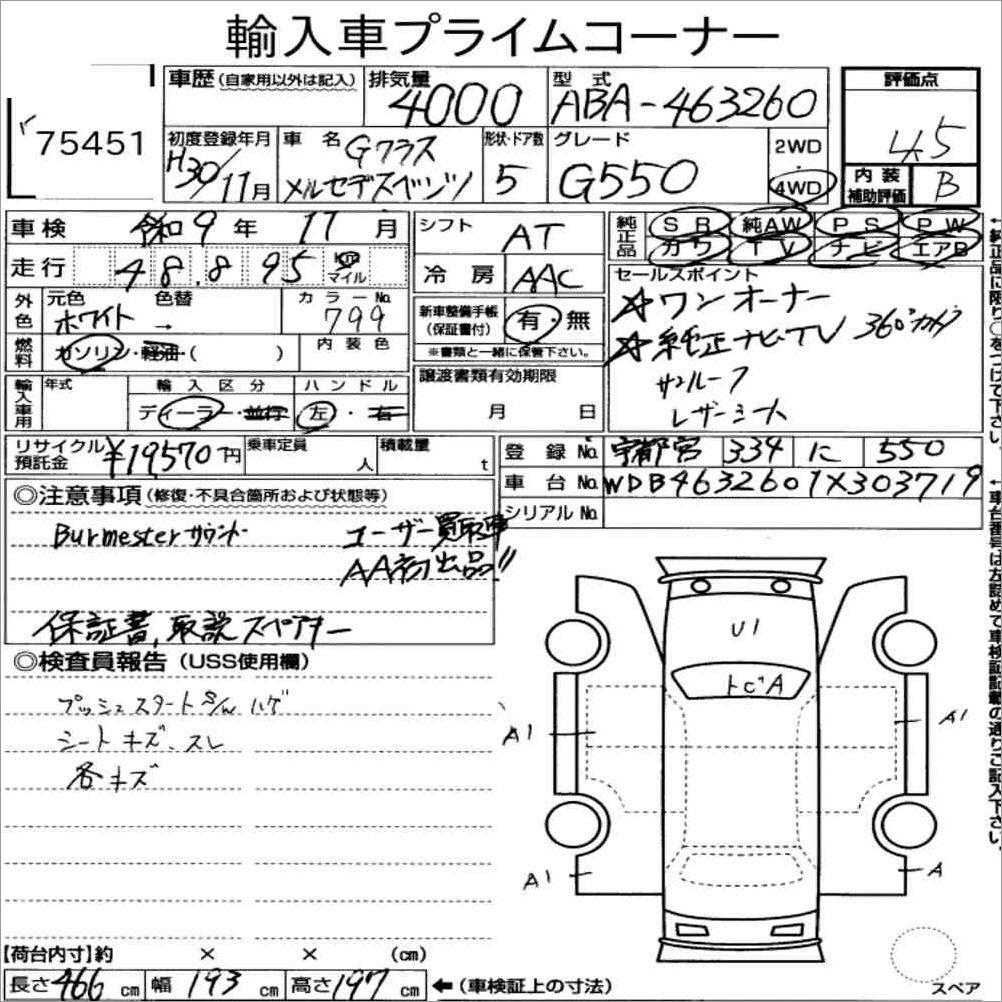 輸入車プライムコーナー
75451
車歴 (自家用以外は記入) 排気量 4000 型式 ABA-463260 評価点 4.5
初度登録年月 H30/11月 車名 Gクラス メルセデスベンツ 形状・ドア数 5 グレード G550 2WD・4WD 内装補助評価 B
車検 令和9年11月 シフト AT 純正品 SR 純AW PS PW
カワ TV ナビ エアB
走行 48,895 km マイル 冷房 AAC
セールスポイント
☆ワンオーナー
☆純正ナビ・TV 360°カメラ
サンルーフ
レザーシート
外色 元色 ホワイト 色替 → カラーNo. 799
新車整備手帳(保証書付) 有・無
※書類と一緒に保管下さい。
燃料 ガソリン・軽油・( ) 内装色
譲渡書類有効期限 月 日
輸入車用 年式 輸入区分 ディーラー・並行 ハンドル 左・右
リサイクル預託金 ¥19570円 乗車定員 人 積載量 t
登録No. 宇都宮 334 に 550
車台No. WDB4632601X303719
シリアルNo.
◎注意事項 (修復・不具合箇所および状態等)
Burmesterサウンド ユーザー買取車
AA初出品!!
保証書、取説 スペアキー
◎検査員報告 (USS使用欄)
プッシュスタートS/W ハゲ
シートキズ、スレ
各キズ
U1
トビA
A1 A1
A1 A
【荷台内寸】約 × × (cm)
長さ466cm 幅193cm 高さ197cm ←(車検証上の寸法)
スペア
←純正品に限り○をつけて下さい。
←車台番号は左詰めで車検証記載の通りご記入下さい。